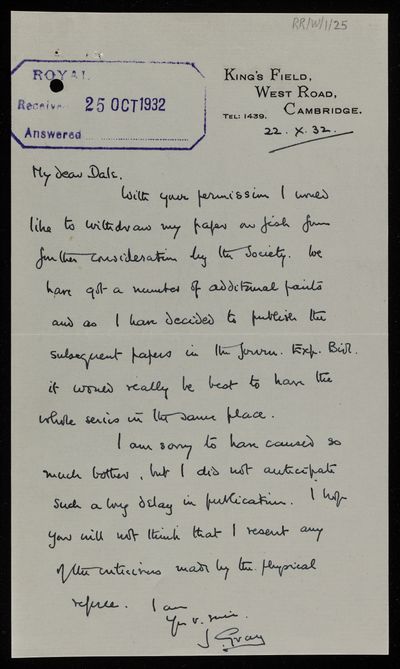 RR/W/1/25
ROYAL
Receive
25 OCT 1932
Answered
KING'S FIELD,
WEST ROAD,
CAMBRIDGE.
TEL: 1439.
22. X. 32.
My dear Dale.
With your permission I would
like to withdraw my paper on fish from
further consideration by the Society. We
have got a number of additional points
and as I have decided to publish the
subsequent papers in the Journ. Exp. Biol.
it would really be best to have the
whole series in the same place.
I am sorry to have caused so
much bother, but I did not anticipate
such a long delay in publication. I hope
you will not think that I resent any
of the criticisms made by the physical
referee. I am
J Gray